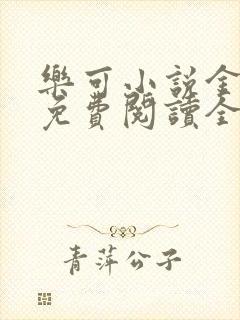 樂可小說全
免費閱讀全
青萍公子